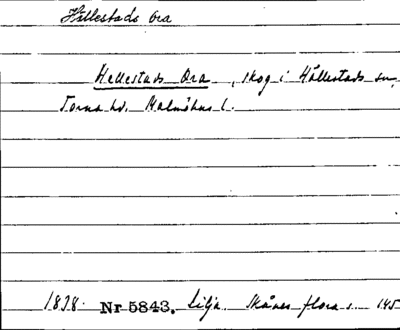 Hällestads Ora
Hellestads Ora, skog i Hällestads sn,
Torna hd. Malmöhus l.
1838. Nr 5843. Lilja Skånes flora s. 145